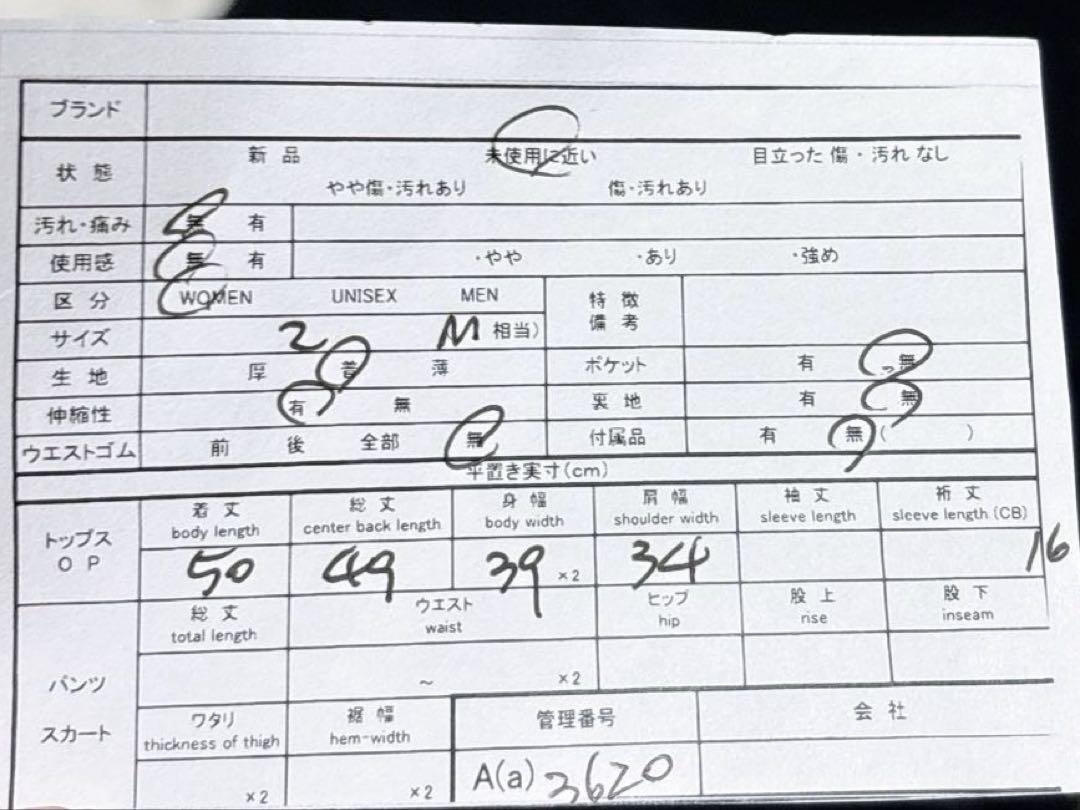 ブランド
状態 新品 未使用に近い 目立った傷・汚れなし
やや傷・汚れあり 傷・汚れあり
汚れ・痛み 無 有
使用感 無 有 ・やや ・あり ・強め
区分 WOMEN UNISEX MEN 特徴備考
サイズ 2 M 相当)
生地 厚 普 薄 ポケット 有 無
伸縮性 有 無 裏地 有 無
ウエストゴム 前 後 全部 無 付属品 有 無( )
平置き実寸(cm)
トップス OP 着丈 総丈 身幅 肩幅 袖丈 裄丈
body length center back length body width shoulder width sleeve length sleeve length (CB)
50 49 39 ×2 34 16
総丈 ウエスト ヒップ 股上 股下
total length waist hip rise inseam
パンツ ~ ×2
スカート ワタリ 裾幅 管理番号 会社
thickness of thigh hem-width
×2 ×2 A(a) 3620